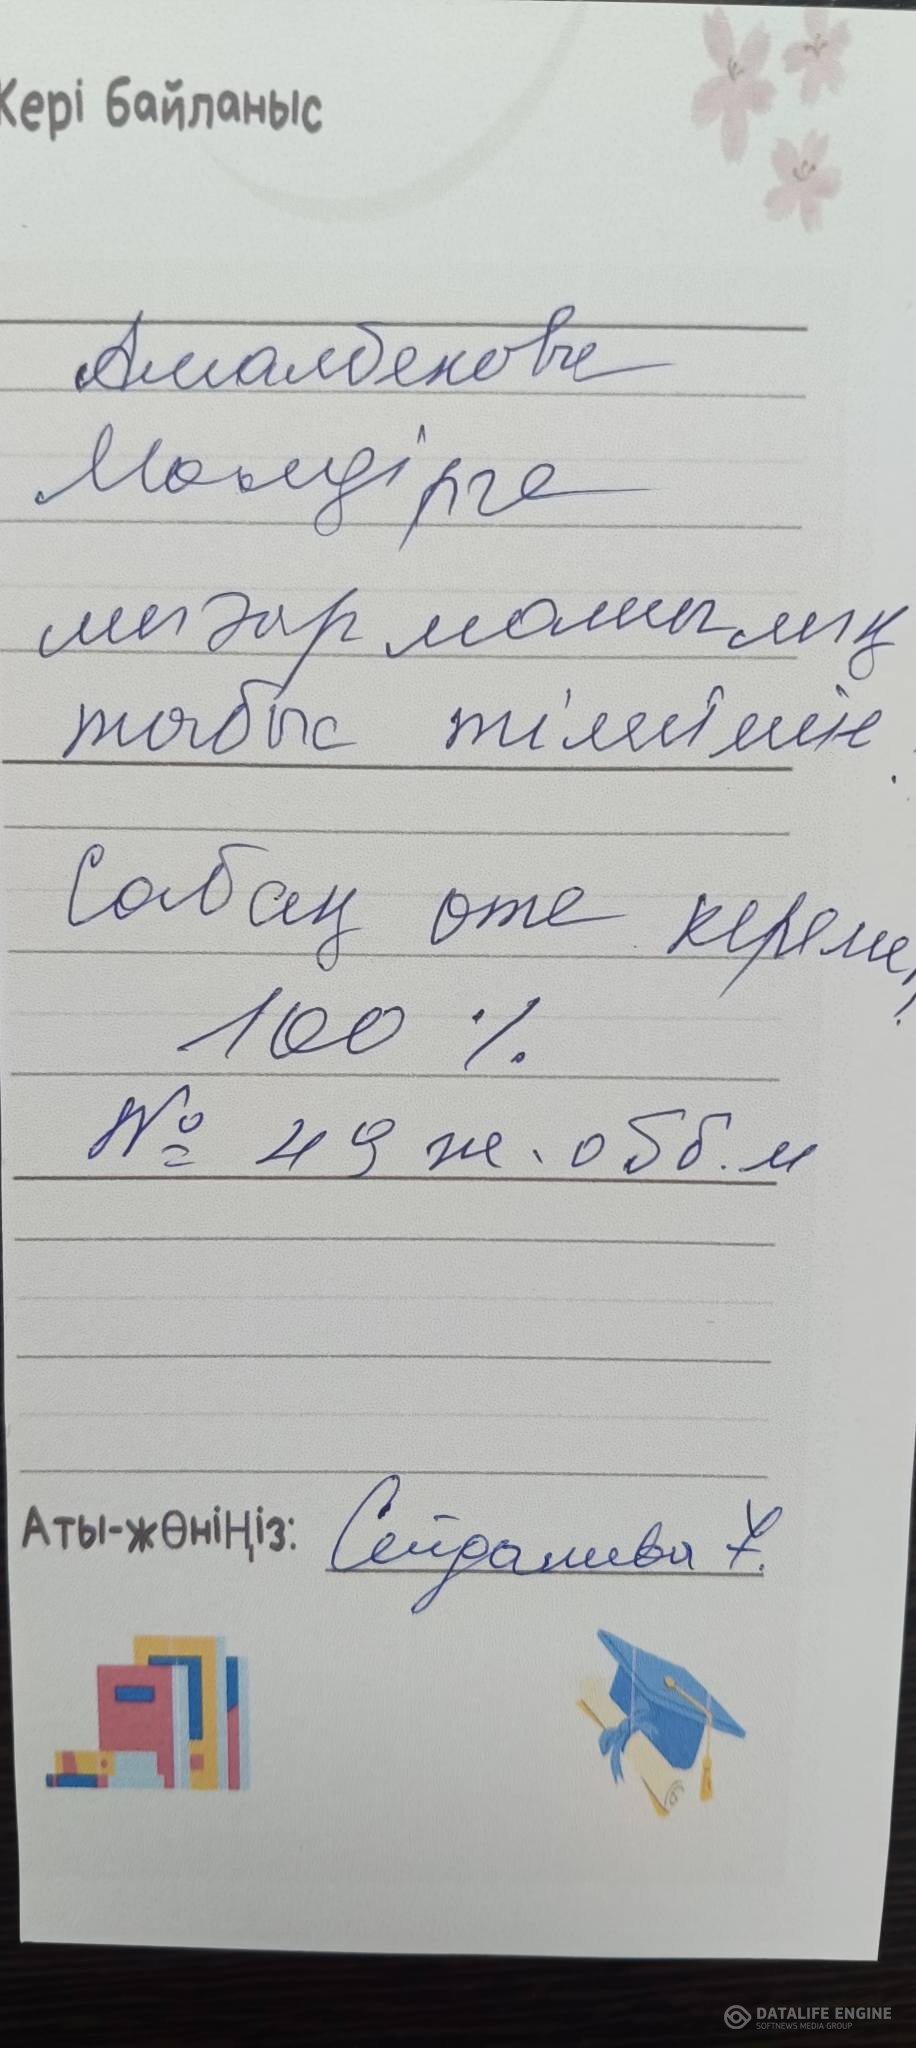 Кері байланыс
Амалбекова
Мөлдірге
шығармашылық
табыс тілеймін.
Сабақ өте керемет!
100 %
№ 49 ж.о.б.б.м
Аты-жөніңіз: Сейдалиева Ұ.
DATALIFE ENGINE
SOFTNEWS MEDIA GROUP